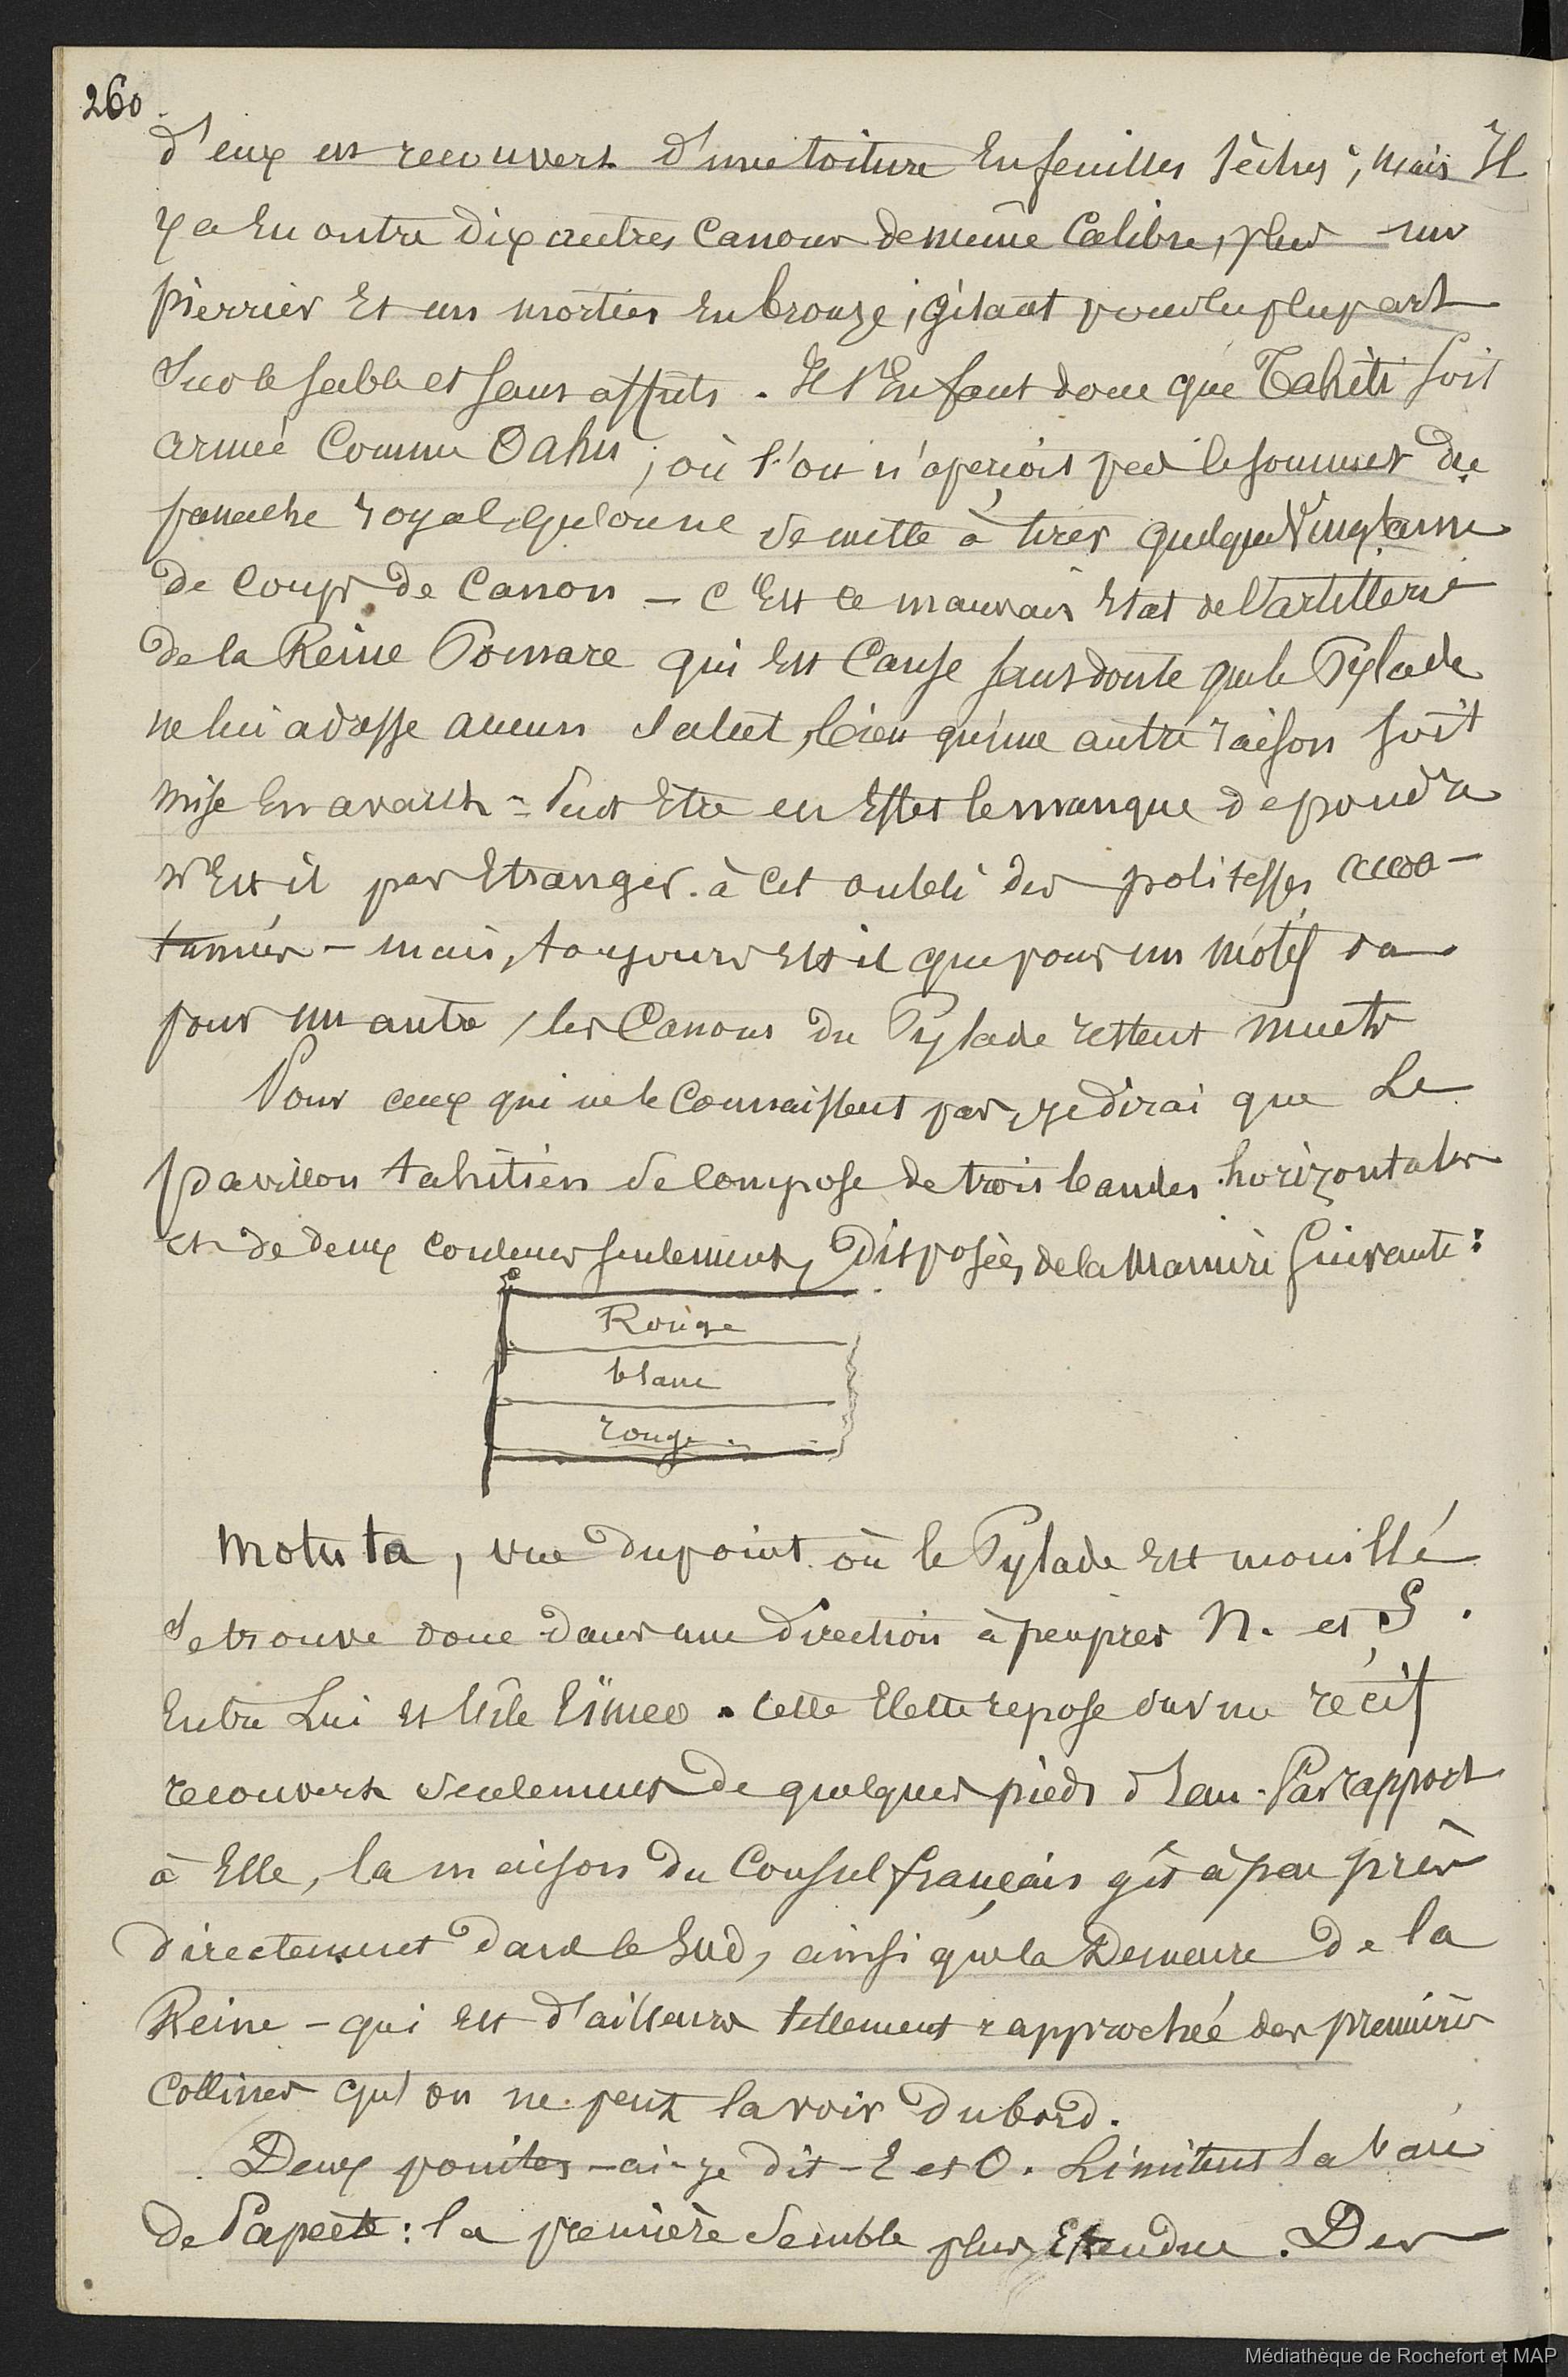 260
d'eux est recouvert d'une toiture en feuilles sèches ; mais Il
y a en outre dix autres canons de même calibre, plus un
pierrier et un mortier en bronze, gisant pour la plupart
sur le sable et sans affuts . Il s'en faut donc que Tahiti soit
armée comme Oahu ; où l'on n'aperçoit pas le sommet du
panache royal, qu'on ne se mette à tirer quelque vingtaine
de coups de canon – c'est ce mauvais état de l'artillerie
de la Reine Pomare qui est cause sans doute que le Pylade
ne lui adresse aucun salut, bien qu'une autre raison soit
mise en avant – Peut être en effet le manque de poudre
n'est il pas étranger à cet oubli des politesses accou-
tumées – mais, toujours est il que pour un motif ou
pour un autre, les canons du Pylade restent muets
Pour ceux qui ne le connaissent pas, je dirai que Le
pavillon tahitien se compose de trois bandes horizontales
et de deux couleurs seulement, disposées de la manière suivante :
Rouge
blanc
rouge .
Motu ta, vue du point où le Pylade est mouillé
se trouve donc dans une direction à peu près N. et S.
entre Lui et l'île Eïmeo . cette Ilette repose sur un récif
recouvert seulement de quelques pieds d'eau . Par rapport
à Elle, la maison du Consul français gît à peu près
directement dans le Sud, ainsi que la Demeure de la
Reine – qui est d'ailleurs tellement rapprochée des premières
collines qu'on ne peut la voir du bord.
Deux pointes – ai-je dit – E et O. Limitent la baie
de Papeete : la première semble plus étendue . Des
Médiathèque de Rochefort et MAP